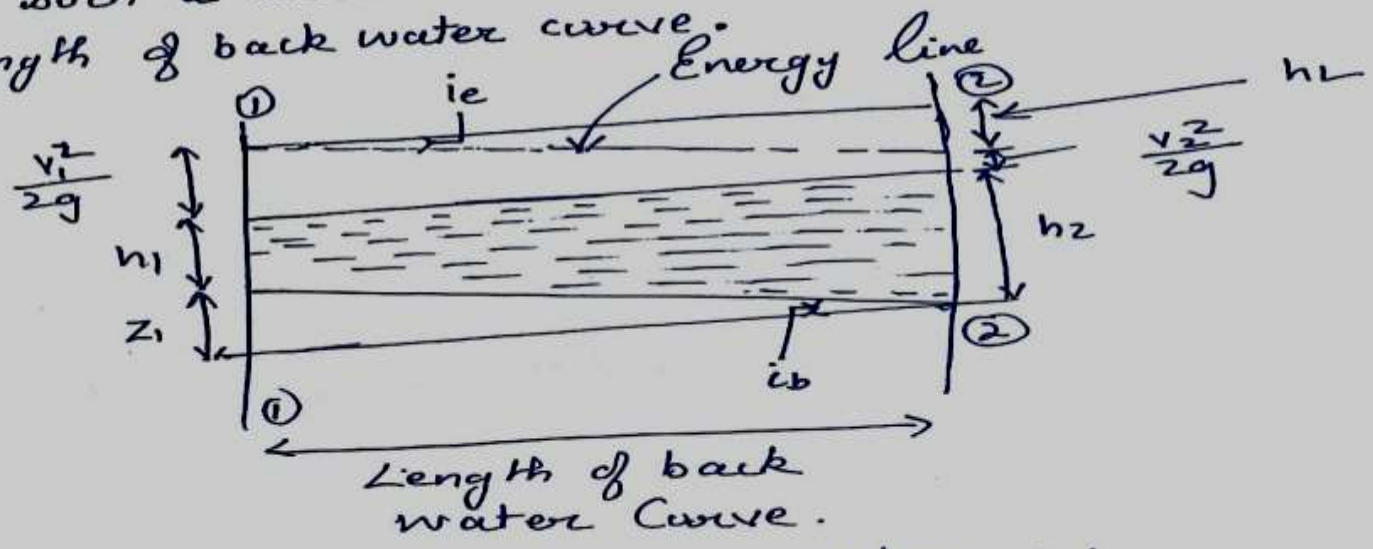 ngth of back water curve.
Energy line
① ie ② hL
v₁²/2g v₂²/2g
h₁ h₂
Z₁ ib ②
①
Length of back
water Curve.